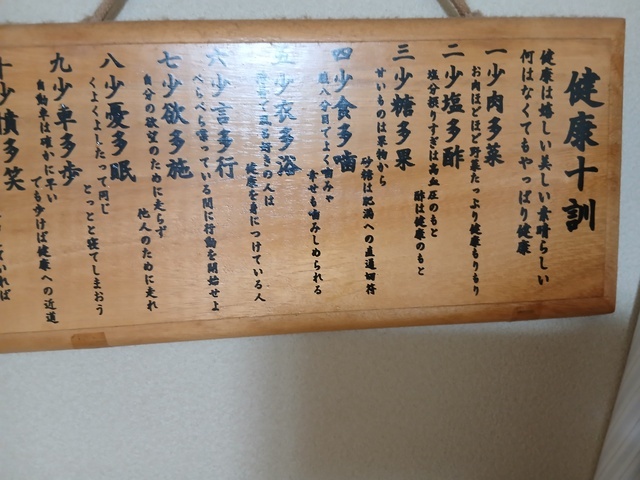 健康十訓
健康は嬉しい美しい素晴らしい
何はなくてもやっぱり健康
一 少肉多菜
お肉ほどほど野菜たっぷり健康もりもり
二 少塩多酢
塩分摂りすぎは高血圧のもと
酢は健康のもと
三 少糖多果
甘いものは果物から
砂糖は肥満への直通切符
四 少食多噛
腹八分目でよく噛みゃ
幸せも噛みしめられる
五 少衣多浴
好きの人は
健康を身につけている人
六 少言多行
べらべら喋っている間に行動を開始せよ
七 少欲多施
自分の欲望のために走らず
他人のために走れ
八 少憂多眠
くよくよしたって同じ
とっとと寝てしまおう
九 少車多歩
自動車は確かに早い
でも歩けば健康への近道
十 少憤多笑
いれば